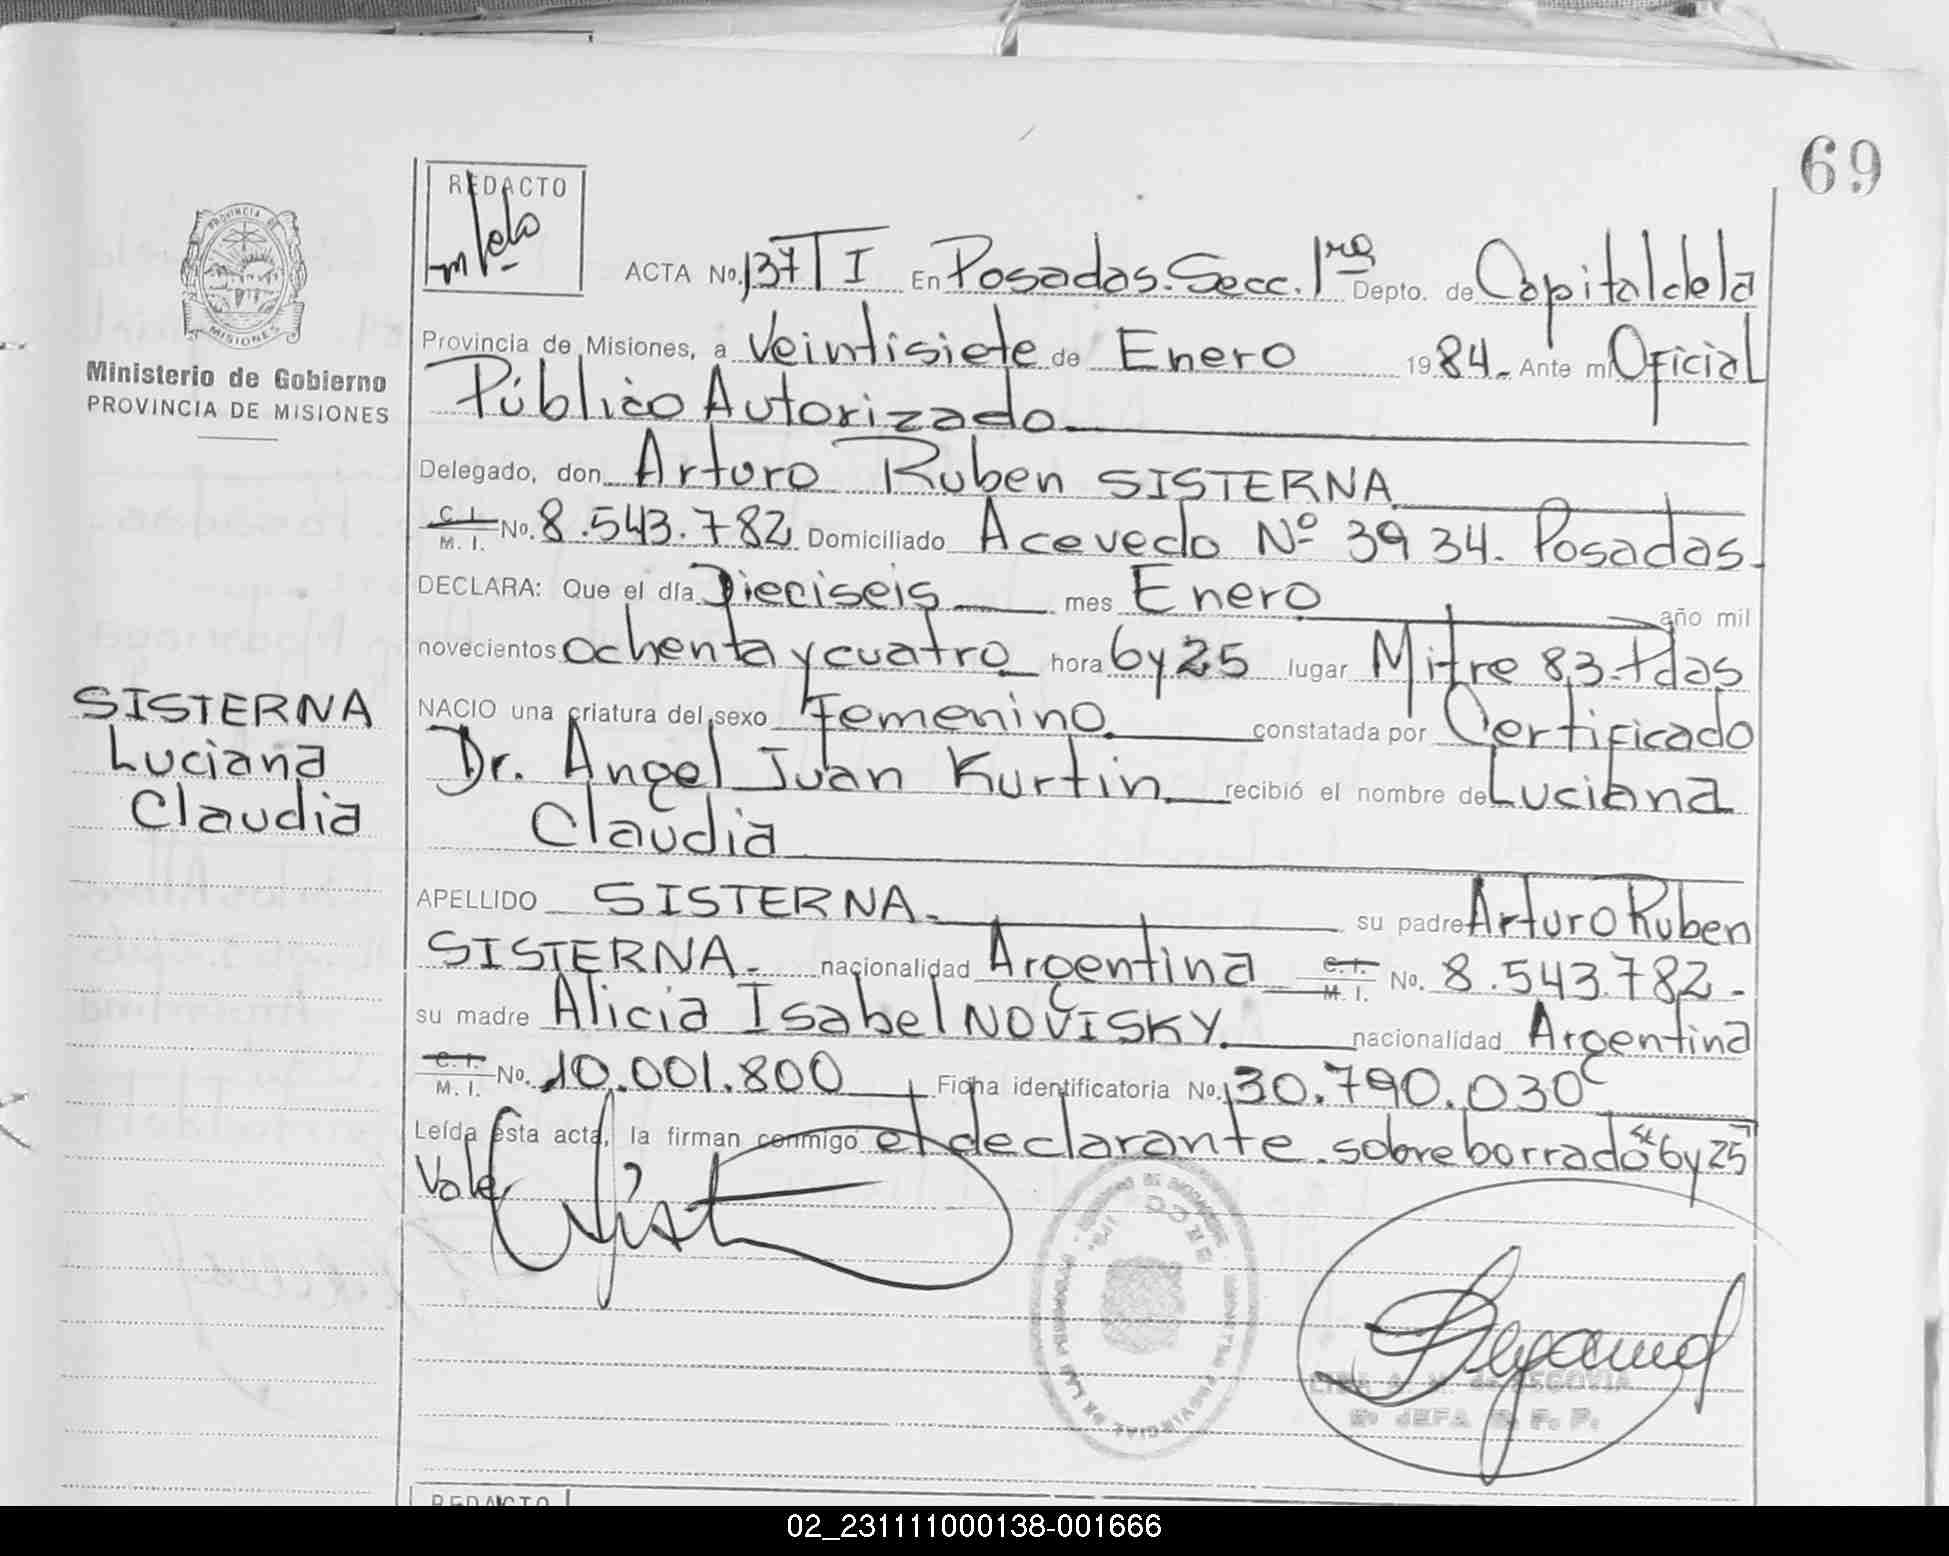 69
REDACTO
ACTA No. 137 T I En Posadas. Secc. 1ra Depto. de Capital de la
PROVINCIA DE
MISIONES
Ministerio de Gobierno
PROVINCIA DE MISIONES
Provincia de Misiones, a Veintisiete de Enero 1984. Ante mi Oficial
Público Autorizado
Delegado, don Arturo Ruben SISTERNA
C. I. M. I. No. 8.543.782 Domiciliado Acevedo Nº 3934. Posadas.
DECLARA: Que el día Dieciseis mes Enero año mil
novecientos ochenta y cuatro hora 6 y 25 lugar Mitre 83. Pdas
NACIO una criatura del sexo Femenino. constatada por Certificado
Dr. Angel Juan Kurtin recibió el nombre de Luciana
Claudia
SISTERNA
Luciana
Claudia
APELLIDO SISTERNA. su padre Arturo Ruben
SISTERNA. nacionalidad Argentina C. I. M. I. No. 8.543.782.
su madre Alicia Isabel NOVISKY. nacionalidad Argentina
C. I. M. I. No. 10.001.800 Ficha identificatoria No. 30.790.030
Leída esta acta, la firman conmigo el declarante. sobre borrado 6 y 25
Vale
DE SEGOVIA
JEFA
REDACTO
02_231111000138-001666